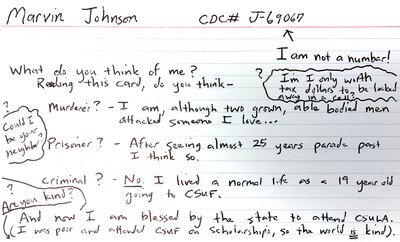 Marvin Johnson CDC# J-69067
I am not a number!
What do you think of me?
Reading this card, do you think-
? I'm I only worth
tax dollars to? be locked
away in a cell?
Murderer? - I am, although two grown, able bodied men
attacked someone I love...
?
Could I
be your
neighbor
Prisoner? - After seeing almost 25 years parade past
I think so.
Criminal? - No. I lived a normal life as a 19 year old
going to CSUF.
?
Are you kind?
And now I am blessed by the state to attend CSULA.
(I was poor and attended CSUF on scholarships, so the world is kind).